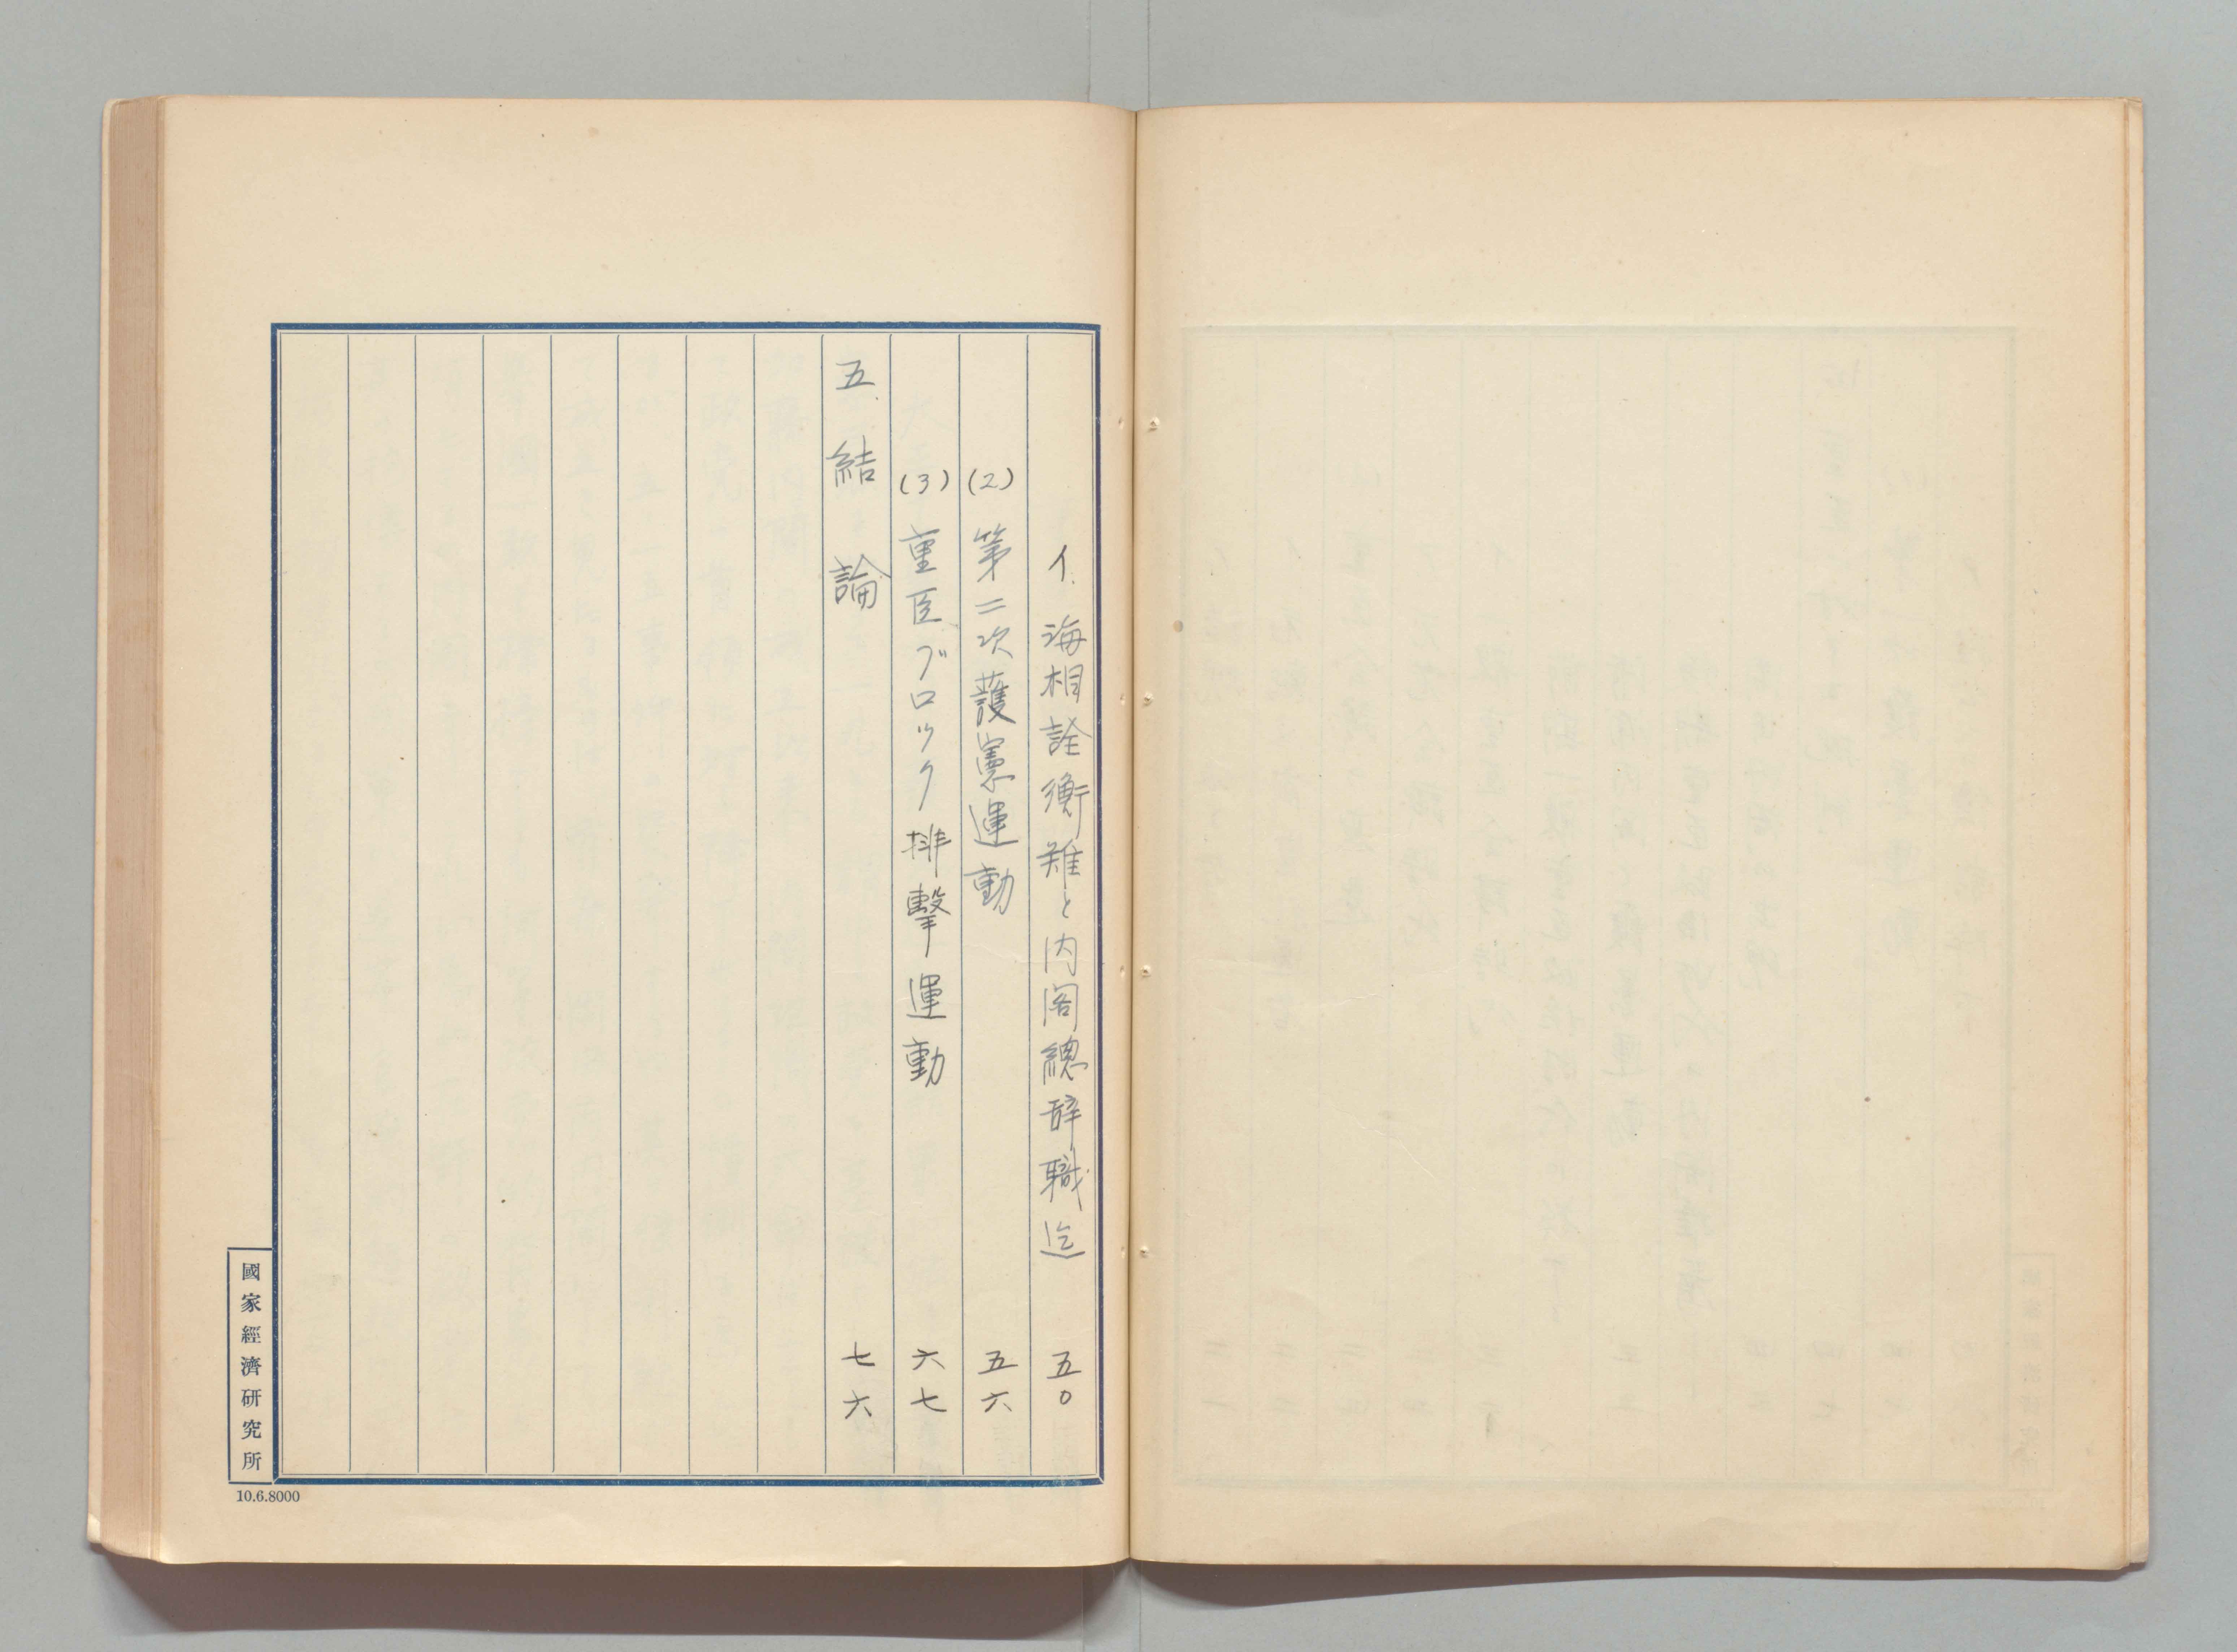 イ.海相詮衡難と内閣總辞職迄 五〇
(2)第二次護憲運動 五六
(3)重臣ブロック排撃運動 六七
五.結論 七六
國家經濟研究所
10.6.8000